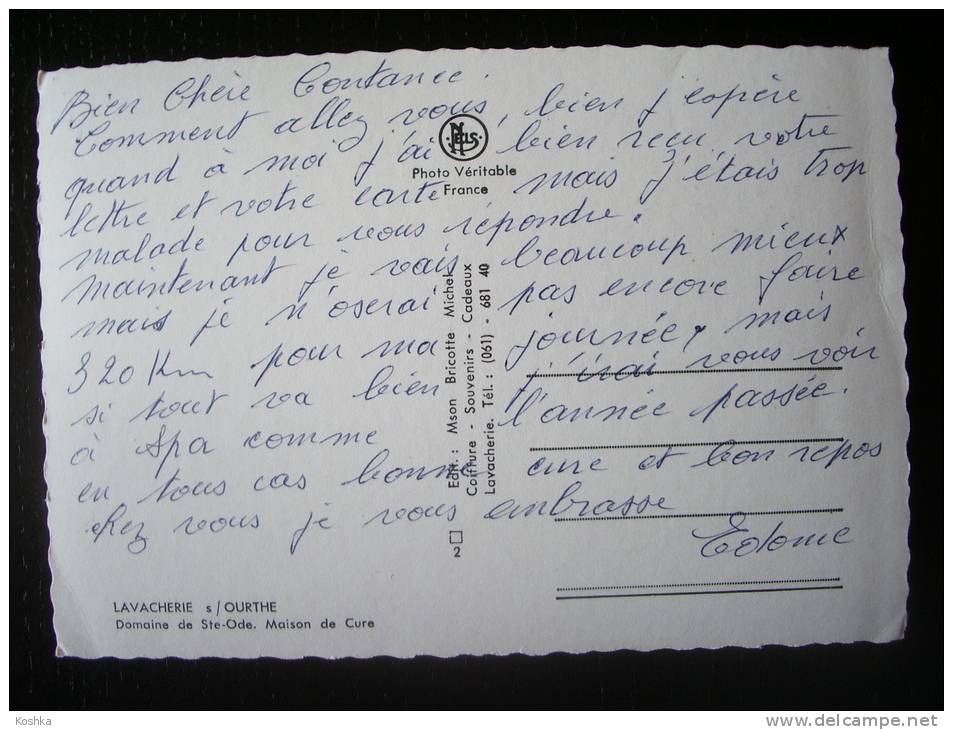 Bien Chère Contance.
Comment allez vous, bien j'éspère
quand à moi j'ai bien reçu votre
lettre et votre carte mais j'étais trop
malade pour vous répondre.
maintenant je vais beaucoup mieux
mais je n'oserai pas encore faire
320 Km pour ma journée, mais
si tout va bien j'irai vous voir
à Spa comme l'année passée.
en tous cas bonne cure et bon repos
chez vous je vous embrasse
NELS
Photo Véritable
France
Edit. : Mson Bricotte Michel
Coiffure - Souvenirs - Cadeaux
Lavacherie. Tél. : (061) - 681 40
2
LAVACHERIE s/OURTHE
Domaine de Ste-Ode. Maison de Cure
Koshka
www.delcampe.net